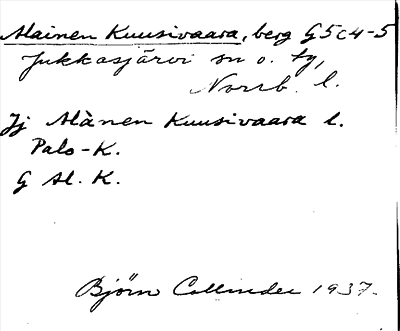 Alainen Kuusivaara, berg G5c4-5
Jukkasjärvi sn o. tg,
Norrb. l.
Jj Alànen Kuusivaara l.
Palo-K.
G Al. K.
Björn Collinder 1937.